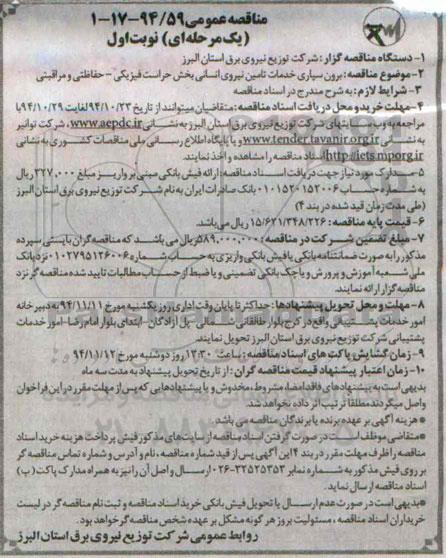 مناقصه عمومی ۹۴/۵۹-۱۷-۱
(یک مرحله ای) نوبت اول
۱- دستگاه مناقصه گزار: شرکت توزیع نیروی برق استان البرز
۲- موضوع مناقصه: برون سپاری خدمات تامین نیروی انسانی بخش حراست فیزیکی - حفاظتی و مراقبتی
۳- شرایط لازم: به شرح مندرج در اسناد مناقصه
۴- مهلت خرید و محل دریافت اسناد مناقصه: متقاضیان میتوانند از تاریخ ۹۴/۱۰/۲۳ لغایت ۹۴/۱۰/۲۹ با
مراجعه به وب سایتهای شرکت توزیع نیروی برق استان البرز به نشانی www.aepdc.ir، شرکت توانیر
به نشانی www.tender.tavanir.org.ir و یا پایگاه اطلاع رسانی ملی مناقصات کشوری به نشانی
http://iets.mporg.ir اسناد مناقصه را مشاهده و اخذ نمایند.
۵- مدارک مورد نیاز جهت دریافت اسناد مناقصه: ارائه فیش بانکی مبنی بر واریز مبلغ ۳۲۷,۰۰۰ ریال
به شماره حساب ۰۱۰۱۵۲۰۱۵۲۰۰۶ بانک صادرات ایران به نام شرکت توزیع نیروی برق استان البرز
(طی مدت زمان قید شده در بند ۴)
۶- قیمت پایه مناقصه: ۱۵/۶۳۱/۳۴۸/۲۲۶ ریال می باشد.
۷- مبلغ تضمین شرکت در مناقصه: ۵۸۹,۰۰۰,۰۰۰ ریال می باشد که مناقصه گران بایستی سپرده
مذکور را به صورت ضمانتنامه بانکی یا فیش بانکی واریزی به حساب شماره ۰۱۰۲۷۹۵۱۲۶۰۰۶ نزد بانک
ملی شعبه آموزش و پرورش و یا چک بانکی تضمینی و یا ضبط از حساب مطالبات تایید شده مناقصه گر نزد
مناقصه گزار ارائه نمایند.
۸- مهلت و محل تحویل پیشنهادها: حداکثر تا پایان وقت اداری روز یکشنبه مورخ ۹۴/۱۱/۱۱ به دبیر خانه
امور خدمات پشتیبانی واقع در کرج بلوار طالقانی شمالی - پل آزادگان - ابتدای بلوار امام رضا - امور خدمات
پشتیبانی شرکت توزیع نیروی برق استان البرز تحویل نمایند.
۹- زمان گشایش پاکت های اسناد مناقصه: ساعت ۱۳:۳۰ روز دوشنبه مورخ ۹۴/۱۱/۱۲
۱۰- زمان اعتبار پیشنهاد قیمت مناقصه گران: از تاریخ تحویل پیشنهاد به مدت سه ماه
بدیهی است به پیشنهادهای فاقد امضاء، مشروط، مخدوش و یا پیشنهادهایی که پس از مهلت مقرر در این فراخوان
واصل میگردند مطلقا ترتیب اثر داده نخواهد شد.
* هزینه آگهی بر عهده برنده یا برندگان مناقصه می باشد.
* متقاضی موظف است در صورت گرفتن اسناد مناقصه از سایت های مذکور فیش پرداخت هزینه خرید اسناد
مناقصه را ظرف مهلت مقرر در بند ۴ این آگهی پس از قید شماره مناقصه، نام و آدرس و شماره تماس مناقصه گر
بر روی فیش مذکور به شماره نمابر ۳۲۵۲۵۳۵۲-۰۲۶ ارسال و اصل آن را نیز به همراه مدارک پاکت (ب)
اسناد مناقصه ارسال نماید.
* بدیهی است در صورت عدم ارسال یا تحویل فیش بانکی خرید اسناد مناقصه و ثبت نام مناقصه گر در لیست
خریداران اسناد مناقصه، مسئولیت بروز هر گونه مشکل بر عهده شخص مناقصه گر خواهد بود.
روابط عمومی شرکت توزیع نیروی برق استان البرز